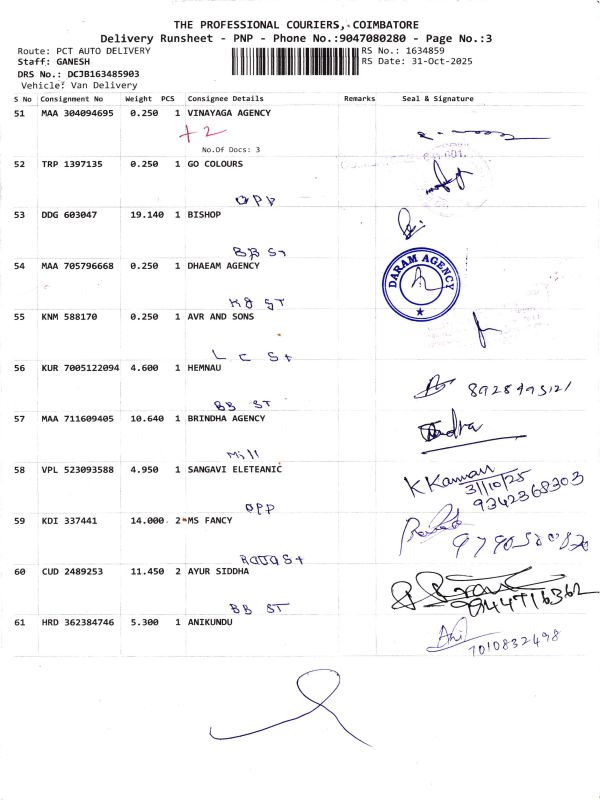 THE PROFESSIONAL COURIERS,.COIMBATORE
Delivery Runsheet - PNP - Phone No.:9047080280 - Page No.:3
Route: PCT AUTO DELIVERY
RS No.: 1634859
Staff: GANESH
RS Date: 31-Oct-2025
DRS No.: DCJB163485903
Vehicle: Van Delivery
S No Consignment No Weight PCS Consignee Details Remarks Seal & Signature
51 MAA 304094695 0.250 1 VINAYAGA AGENCY
+2
No.Of Docs: 3
52 TRP 1397135 0.250 1 GO COLOURS
OPP
53 DDG 603047 19.140 1 BISHOP
BB St
54 MAA 705796668 0.250 1 DHAEAM AGENCY
DARAM AGENCY
KB ST
55 KNM 588170 0.250 1 AVR AND SONS
L C St
56 KUR 7005122094 4.600 1 HEMNAU
BB ST
57 MAA 711609405 10.640 1 BRINDHA AGENCY
Mill
58 VPL 523093588 4.950 1 SANGAVI ELETEANIC
K Kannan
31/10/25
9342368303
OPP
59 KDI 337441 14.000 2 MS FANCY
60 CUD 2489253 11.450 2 AYUR SIDDHA
BB ST
61 HRD 362384746 5.300 1 ANIKUNDU
7010832498